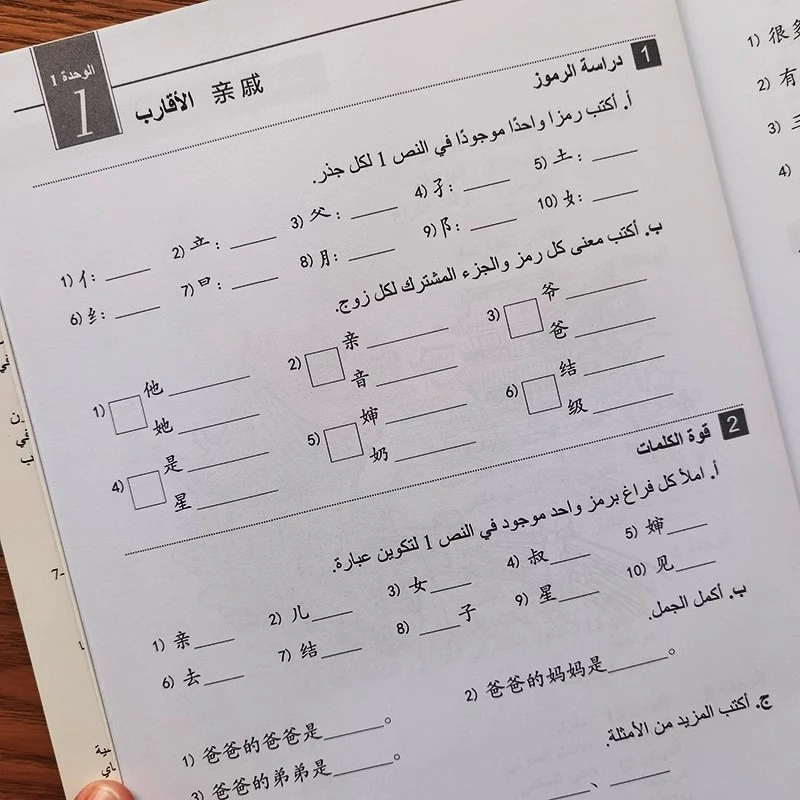 الوحدة 1
1
الأقارب 亲戚
1 دراسة الرموز
أ. أكتب رمزا واحدًا موجودًا في النص 1 لكل جذر.
1) 亻: ____ 2) 立: ____ 3) 父: ____ 4) 子: ____ 5) 土: ____
6) 纟: ____ 7) 曰: ____ 8) 月: ____ 9) 阝: ____ 10) 女: ____
ب. أكتب معنى كل رمز والجزء المشترك لكل زوج.
1) 他 ____
她 ____
2) 亲 ____
音 ____
3) 爷 ____
爸 ____
4) 是 ____
星 ____
5) 婶 ____
奶 ____
6) 结 ____
级 ____
2 قوة الكلمات
أ. املأ كل فراغ برمز واحد موجود في النص 1 لتكوين عبارة.
1) 亲____ 2) 儿____ 3) 女____ 4) 叔____ 5) 婶____
6) 去____ 7) 结____ 8) ____子 9) 星____ 10) 见____
ب. أكمل الجمل.
1) 爸爸的爸爸是____。 2) 爸爸的妈妈是____。
3) 爸爸的弟弟是____。
ج. أكتب المزيد من الأمثلة.
____、____
1) 很多
2) 有
3) 三
4)
7-